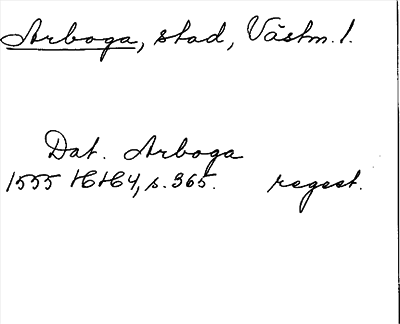 Arboga, stad, Västm. l.
Dat. Arboga
1555 HH4, s. 365. regest.